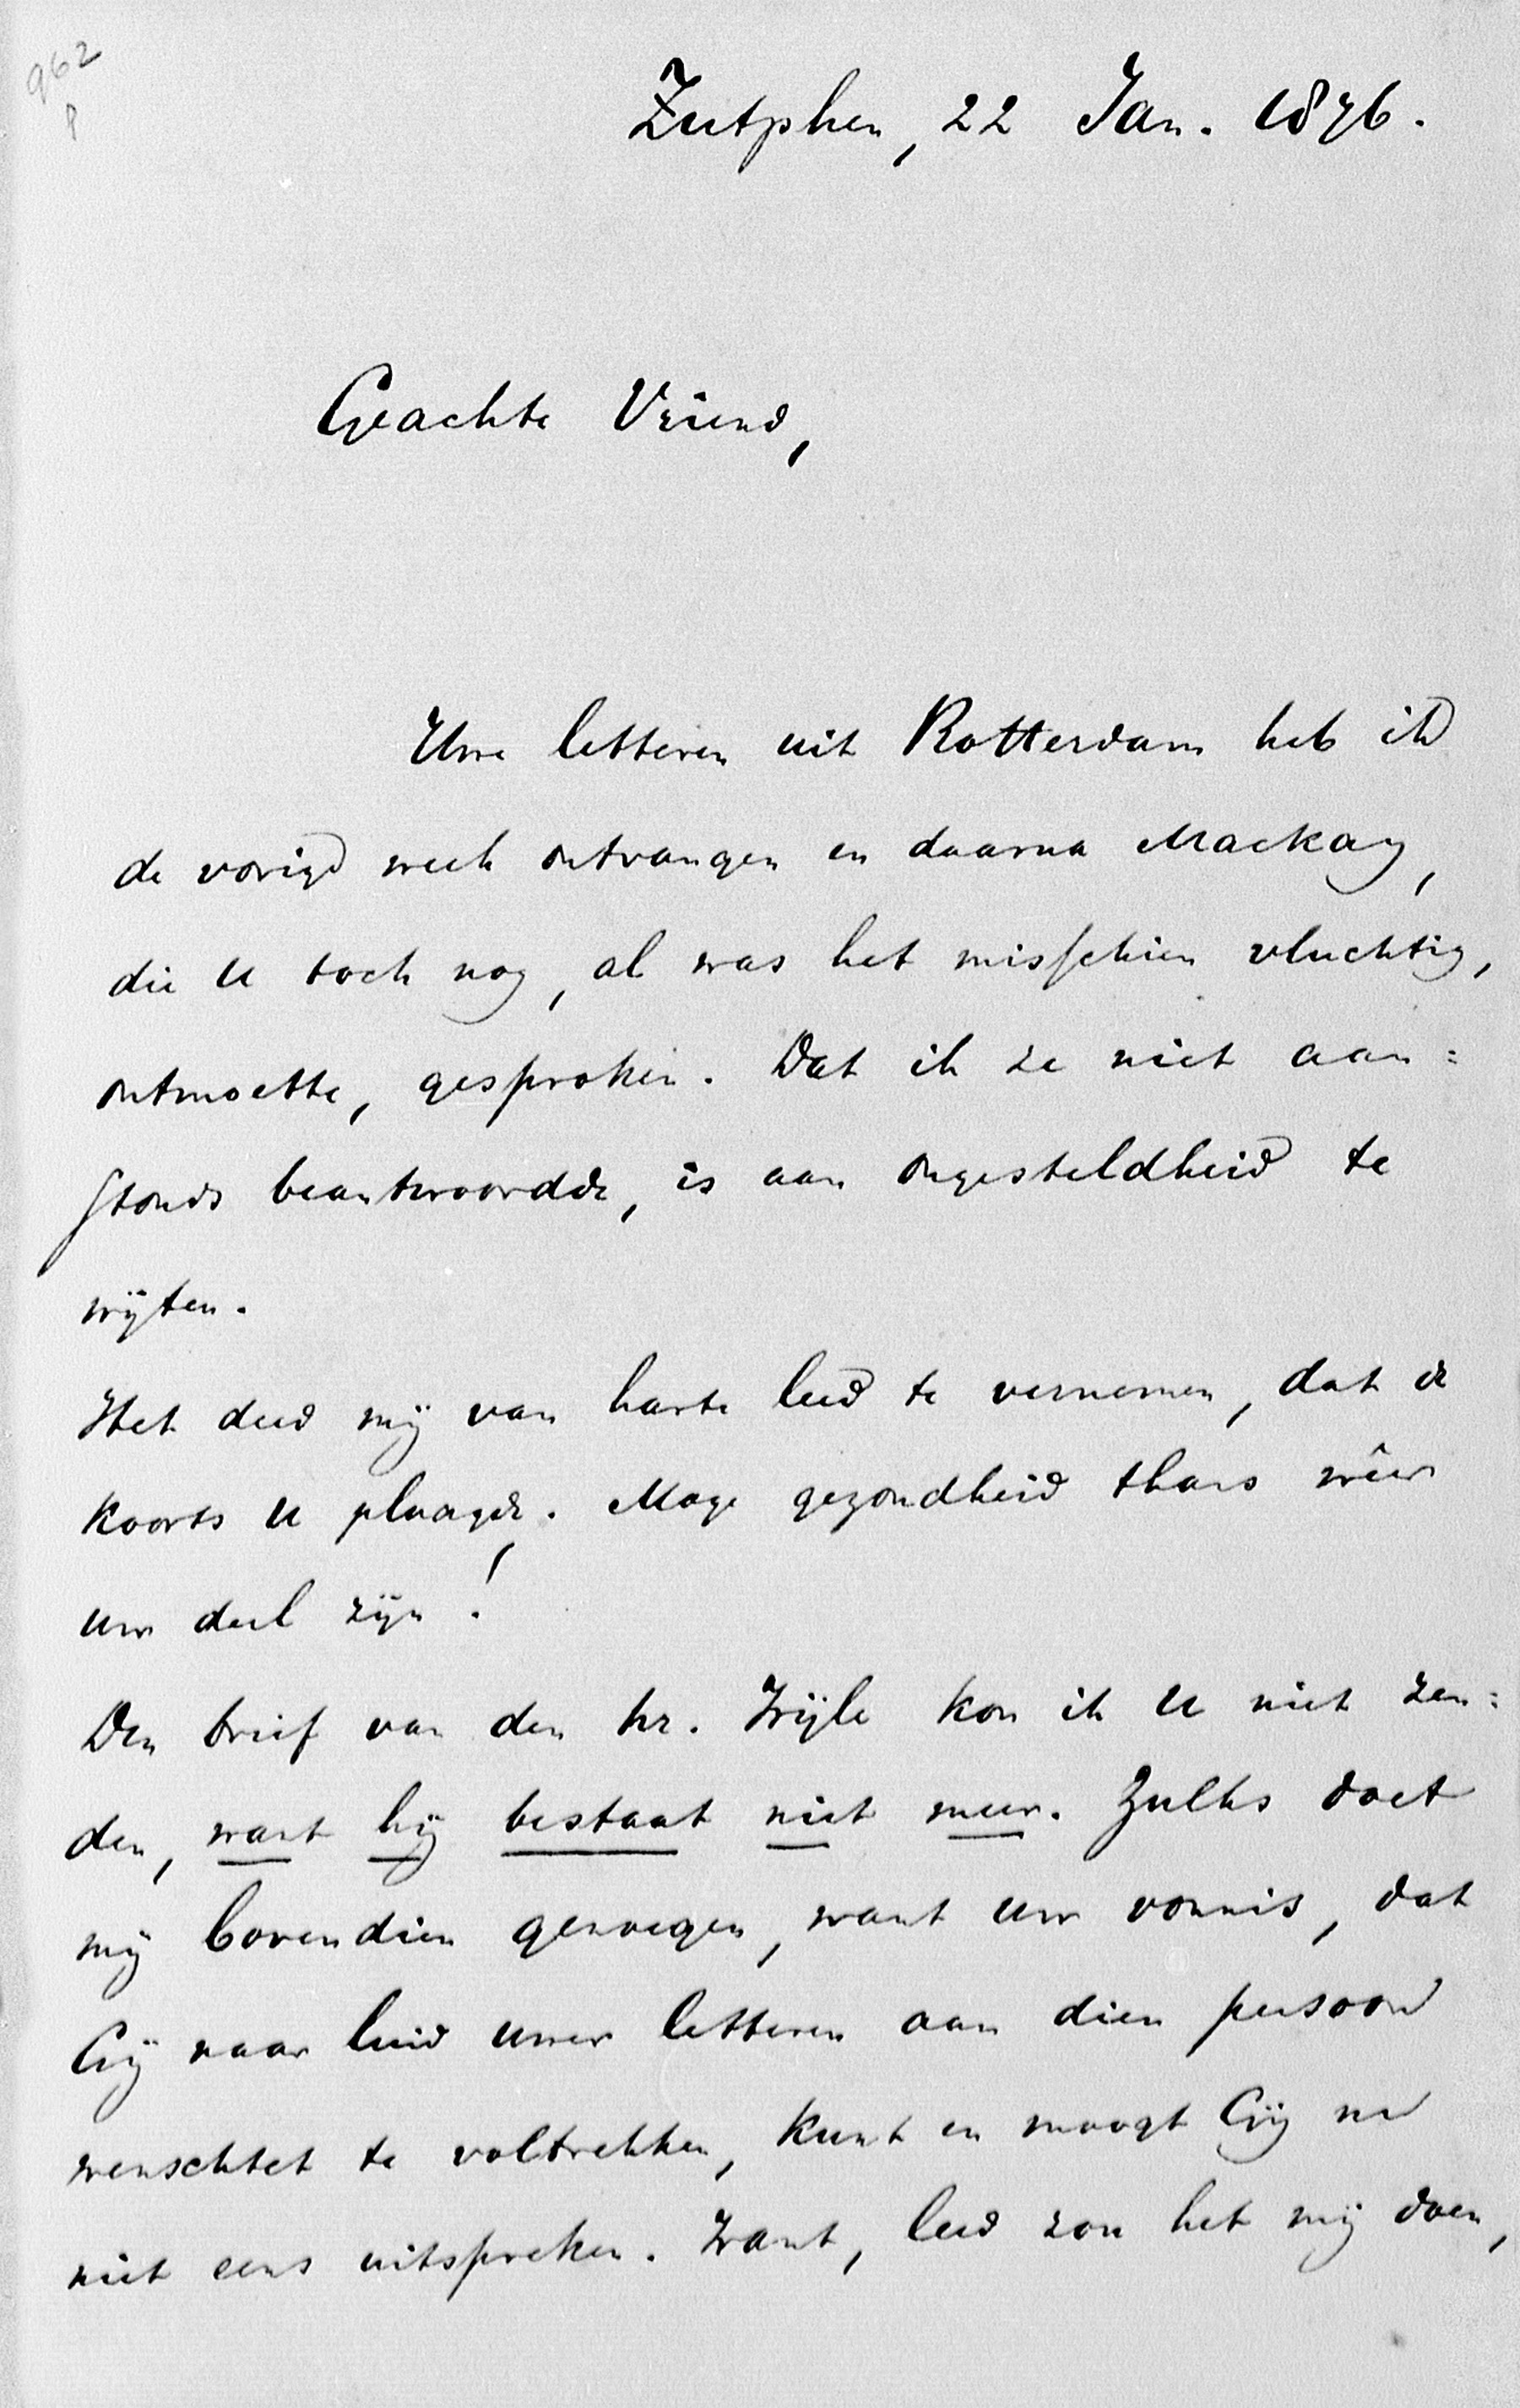 962
P
Zutphen, 22 Jan. 1876.
Geachte Vriend,
Uwe letteren uit Rotterdam heb ik
de vorige week ontvangen en daarna Mackay,
die U toch nog, al was het misschien vluchtig,
ontmoette, gesproken. Dat ik ze niet aan=
stonds beantwoordde, is aan ongesteldheid te
wijten.
Het deed mij van harte leed te vernemen, dat de
koorts U plaagde. Moge gezondheid thans wêer
uw deel zijn!
Den brief van den hr. Wijle kon ik U niet zen=
den, want hij bestaat niet meer. Zulks doet
mij bovendien genoegen, want uw vonnis, dat
Gij naar luid uwer letteren aan dien persoon
wenschtet te voltrekken, kunt en moogt Gij nu
niet eens uitspreken. Want, leed zou het mij doen,